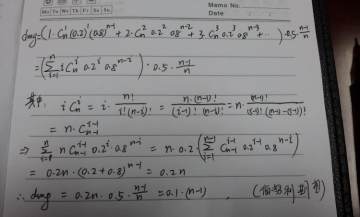 Memo No.
Mo Tu We Th Fr Sa Su
Date
dmg=(1·C_n^1(0.2)^1(0.8)^{n-1}+2·C_n^2 0.2^2 0.8^{n-2}+3·C_n^3 0.2^3 0.8^{n-3}+…)·0.5·\frac{n-1}{n}
=(\sum_{i=1}^{n} i C_n^i 0.2^i 0.8^{n-i})·0.5·\frac{n-1}{n}
其中: i C_n^i = i·\frac{n!}{i!(n-i)!} = \frac{n·(n-1)!}{(i-1)!(n-i)!} = n·\frac{(n-1)!}{(i-1)!(n-1-(i-1))!}
= n·C_{n-1}^{i-1}
⇒ \sum_{i=1}^{n} n C_{n-1}^{i-1} 0.2^i 0.8^{n-i} = n·0.2(\sum_{i=1}^{n} C_{n-1}^{i-1} 0.2^{i-1} 0.8^{n-i})
= 0.2n·(0.2+0.8)^{n-1} = 0.2n
∴ dmg = 0.2n·0.5·\frac{n-1}{n} = 0.1·(n-1) (伯努利